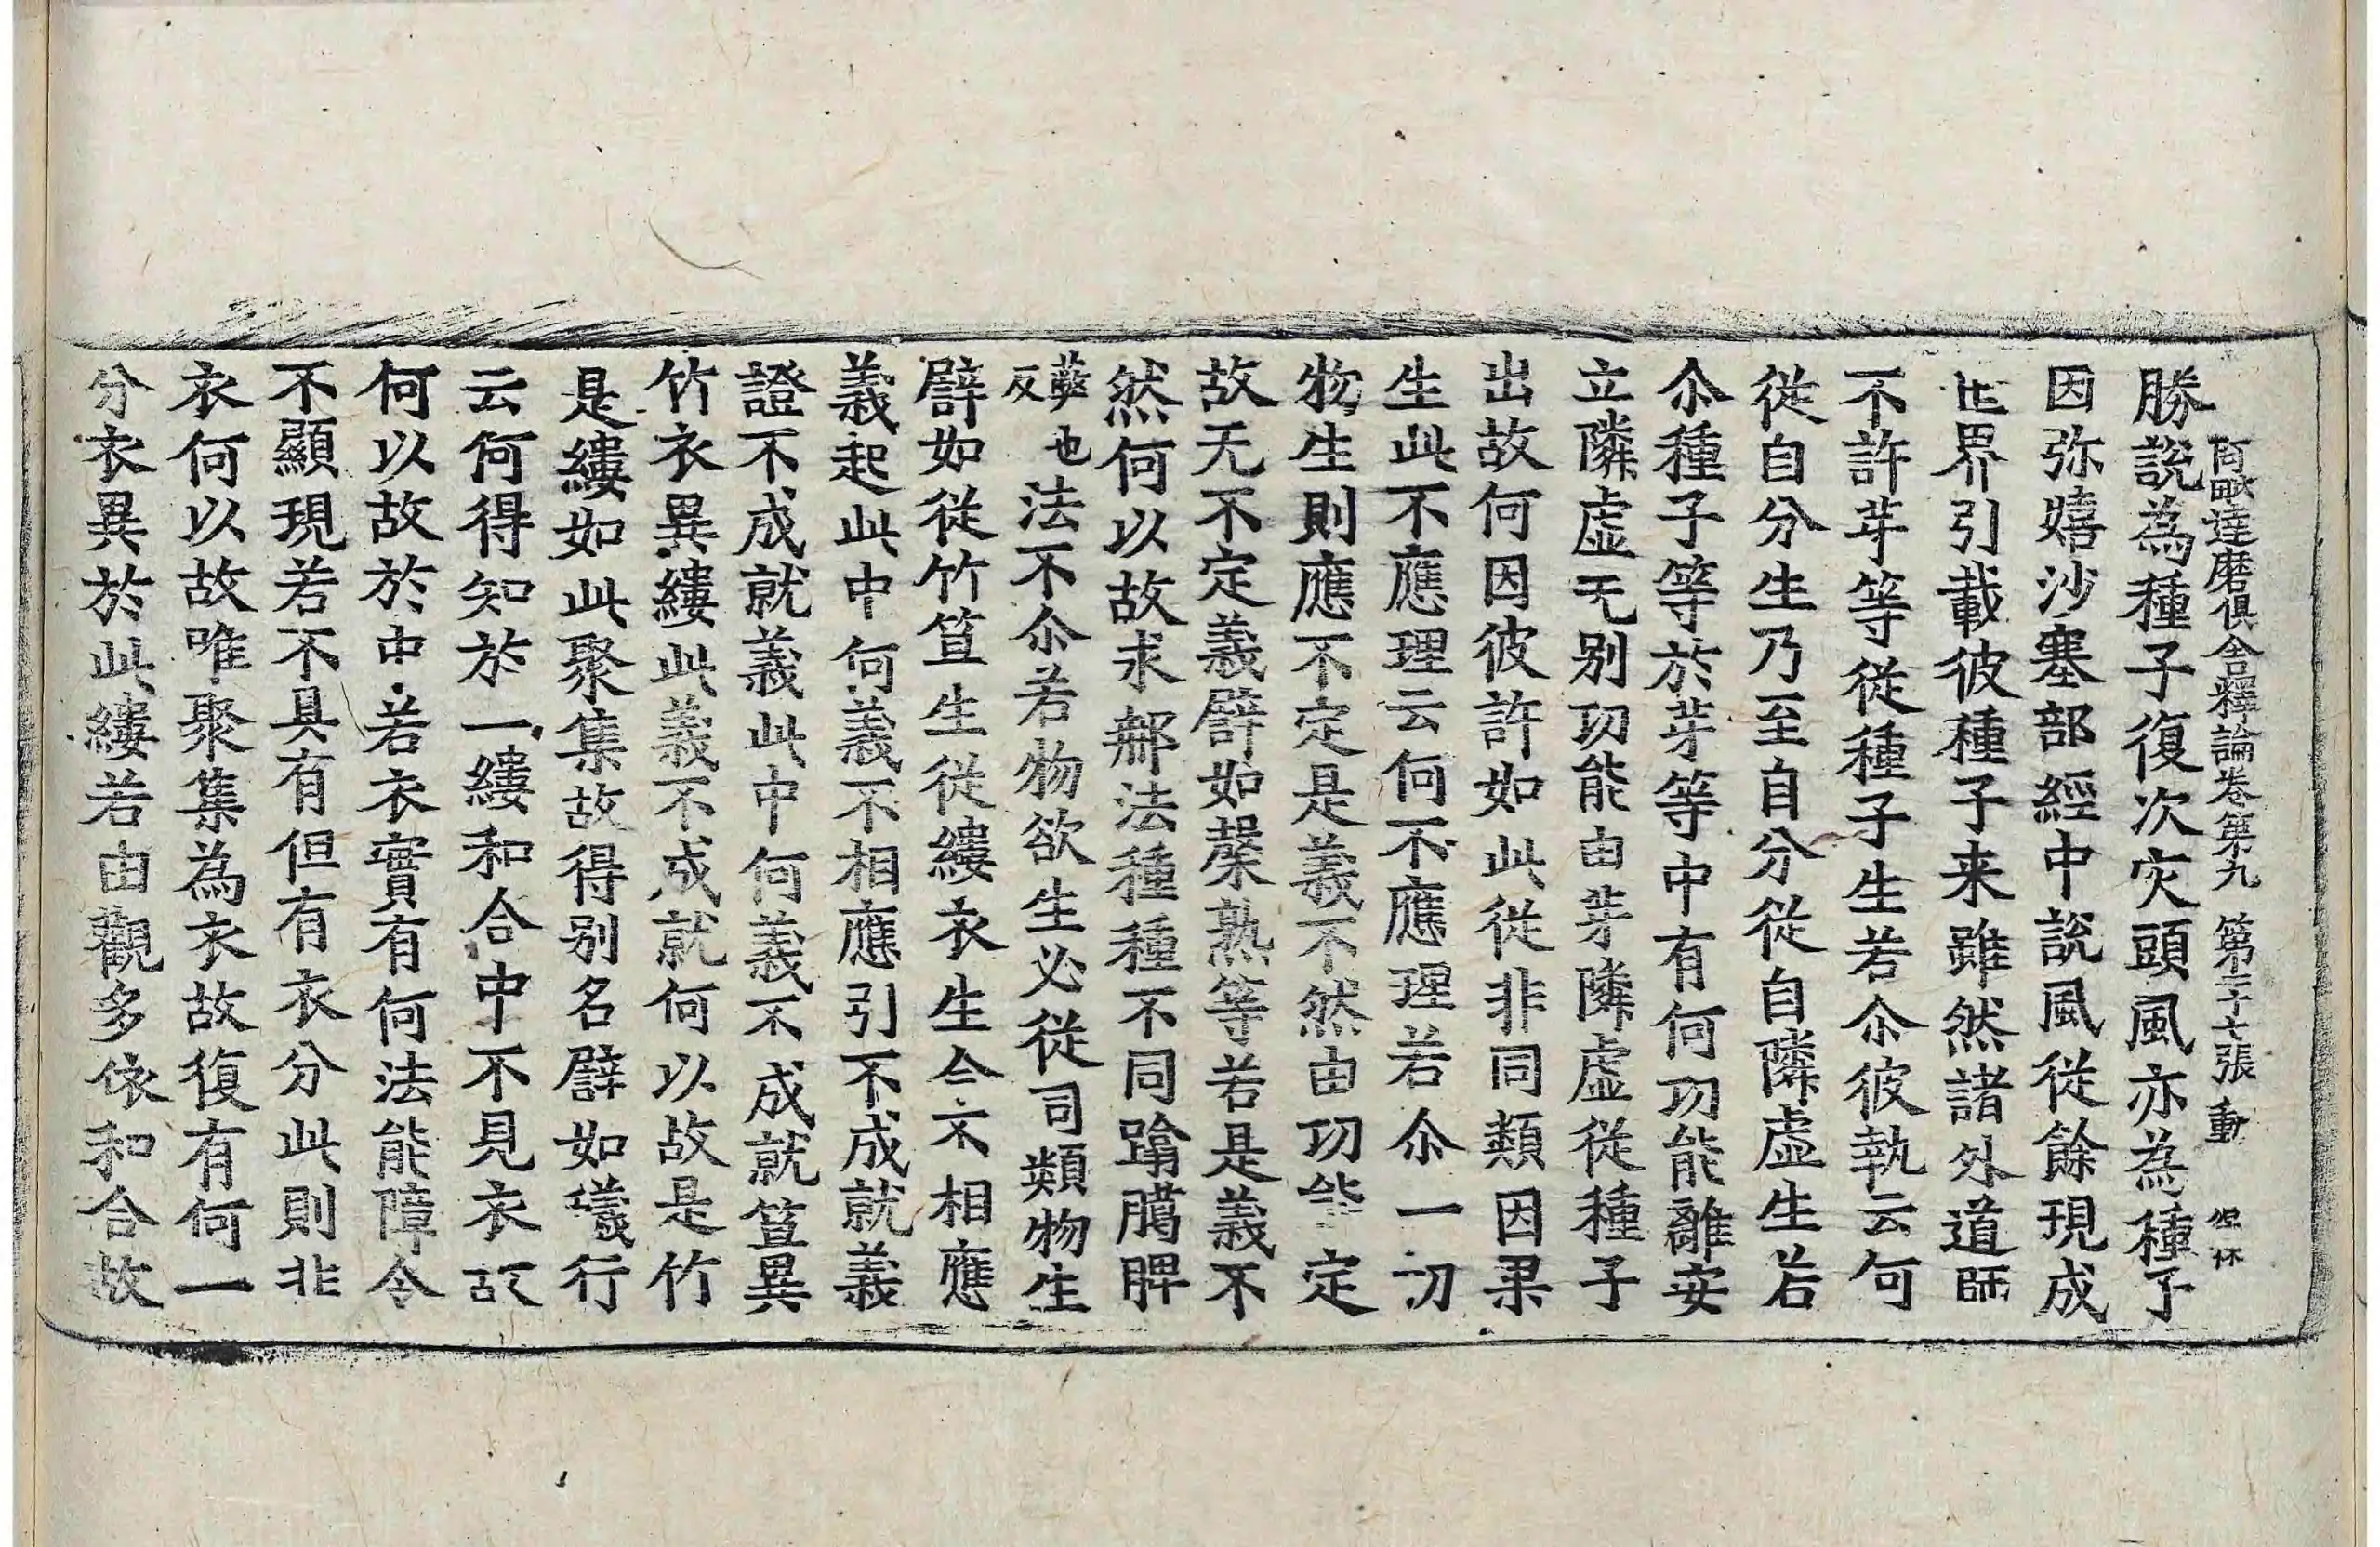 阿毗達磨俱舍釋論卷第九　第二十七張　動
勝說為種子復次灾頭風亦為種子
因弥嬉沙塞部經中說風從餘現成
世界引載彼種子来雖然諸外道師
不許芽等從種子生若尒彼執云何
從自分生乃至自分從自隣虛生若
尒種子等於芽等中有何功能離安
立隣虛无别功能由芽隣虛從種子
出故何因彼許如此從非同類因果
生此不應理云何不應理若尒一切
物生則應不定是義不然由功能定
故无不定義譬如聲熟等若是義不
然何以故求那法種種不同踰𦞅脾
蘂也反法不尒若物欲生必從同類物生
譬如從竹笪生從縷衣生今不相應
義起此中何義不相應引不成就義
證不成就義此中何義不成就笪異
竹衣異縷此義不成就何以故是竹
是縷如此聚集故得别名譬如蟻行
云何得知於一縷和合中不見衣故
何以故於中若衣實有何法能障令
不顯現若不具有但有衣分此則非
衣何以故唯聚集為衣故復有何一
分衣異於此縷若由觀多依和合故